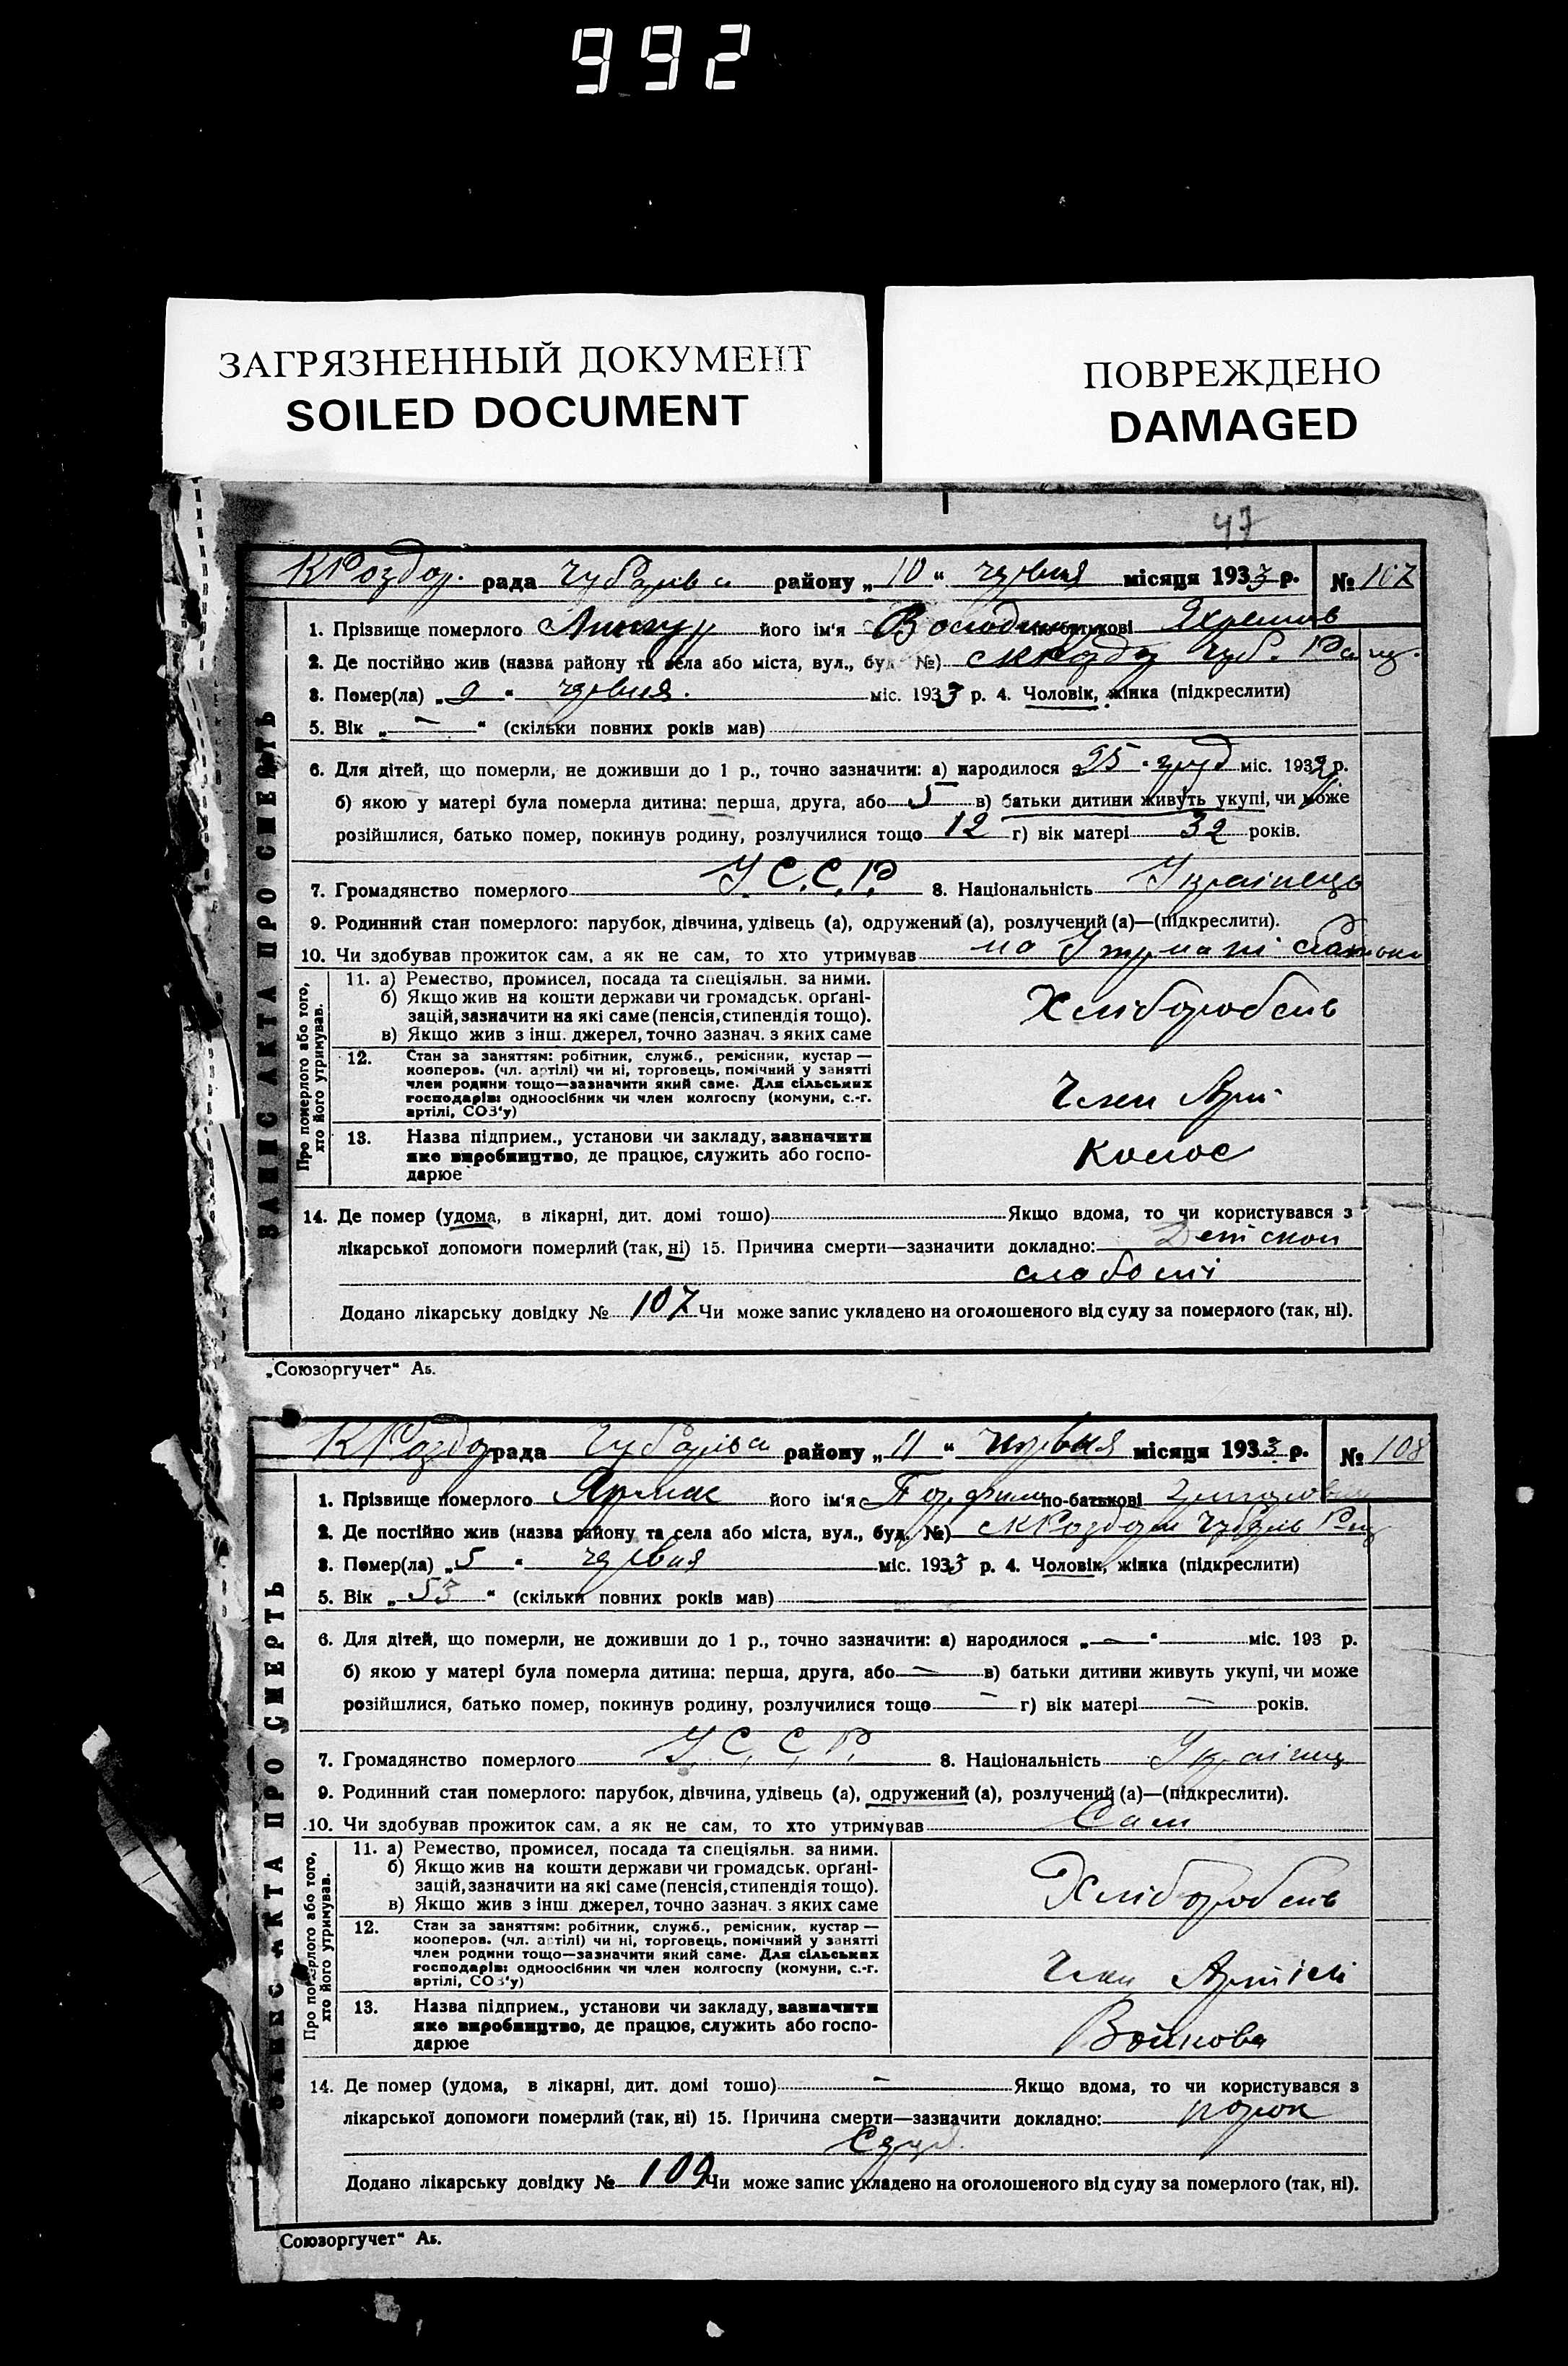 992
ЗАГРЯЗНЕННЫЙ ДОКУМЕНТ
SOILED DOCUMENT
ПОВРЕЖДЕНО
DAMAGED
47
КРоздор. рада Чубарівс району „10“ червня місяця 1933 р. № 107
ЗАПИС АКТА ПРО СМЕРТЬ
1. Прізвище померлого його ім'я Володимир по-батькові
2. Де постійно жив (назва району та села або міста, вул., буд. №) Чуб.
3. Помер(ла) „9“ червня. міс. 1933 р. 4. Чоловік, жінка (підкреслити)
5. Вік „—“ (скільки повних років мав)
6. Для дітей, що померли, не доживши до 1 р., точно зазначити: а) народилося „25“ груд міс. 1932 р.
б) якою у матері була померла дитина: перша, друга, або 5 в) батьки дитини живуть укупі, чи може
розійшлися, батько помер, покинув родину, розлучилися тощо 12 г) вік матері 32 років.
7. Громадянство померлого У.С.С.Р. 8. Національність Українець
9. Родинний стан померлого: парубок, дівчина, удівець (а), одружений (а), розлучений (а)—(підкреслити).
10. Чи здобував прожиток сам, а як не сам, то хто утримував на Утримані батька
Про померлого або того, хто його утримував.
11. а) Ремество, промисел, посада та спеціяльн. за ними.
б) Якщо жив на кошти держави чи громадськ. орґані-
зацій, зазначити на які саме (пенсія, стипендія тощо).
в) Якщо жив з інш. джерел, точно зазнач. з яких саме
Хлібороб
12. Стан за заняттям: робітник, служб., ремісник, кустар —
кооперов. (чл. артілі) чи ні, торговець, помічний у занятті
член родини тощо—зазначити який саме. Для сільських
господарів: одноосібник чи член колгоспу (комуни, с.-г.
артілі, СОЗ'у)
Член Арті
13. Назва підприєм., установи чи закладу, зазначити
яке виробництво, де працює, служить або госпо-
дарює
Колос
14. Де помер (удома, в лікарні, дит. домі тошо) Якщо вдома, то чи користувався з
лікарської допомоги померлий (так, ні) 15. Причина смерти—зазначити докладно: Детской
слабості
Додано лікарську довідку № 107 Чи може запис укладено на оголошеного від суду за померлого (так, ні).
„Союзоргучет“ Аб.
КРоздор рада Чубарівс району „11“ червня місяця 1933 р. № 108
ЗАПИС АКТА ПРО СМЕРТЬ
1. Прізвище померлого Ярмак його ім'я по-батькові
2. Де постійно жив (назва району та села або міста, вул., буд. №) Чубарів
3. Помер(ла) „5“ червня міс. 1933 р. 4. Чоловік, жінка (підкреслити)
5. Вік „53“ (скільки повних років мав)
6. Для дітей, що померли, не доживши до 1 р., точно зазначити: а) народилося „—“ міс. 193 р.
б) якою у матері була померла дитина: перша, друга, або — в) батьки дитини живуть укупі, чи може
розійшлися, батько помер, покинув родину, розлучилися тощо — г) вік матері — років.
7. Громадянство померлого У.С.С.Р. 8. Національність Українец
9. Родинний стан померлого: парубок, дівчина, удівець (а), одружений (а), розлучений (а)—(підкреслити).
10. Чи здобував прожиток сам, а як не сам, то хто утримував Сам
Про померлого або того, хто його утримував.
11. а) Ремество, промисел, посада та спеціяльн. за ними.
б) Якщо жив на кошти держави чи громадськ. орґані-
зацій, зазначити на які саме (пенсія, стипендія тощо).
в) Якщо жив з інш. джерел, точно зазнач. з яких саме
Хлібороб
12. Стан за заняттям: робітник, служб., ремісник, кустар —
кооперов. (чл. артілі) чи ні, торговець, помічний у занятті
член родини тощо—зазначити який саме. Для сільських
господарів: одноосібник чи член колгоспу (комуни, с.-г.
артілі, СОЗ'у)
Член Артілі
13. Назва підприєм., установи чи закладу, зазначити
яке виробництво, де працює, служить або госпо-
дарює
Войкова
14. Де помер (удома, в лікарні, дит. домі тошо) — Якщо вдома, то чи користувався з
лікарської допомоги померлий (так, ні) 15. Причина смерти—зазначити докладно: порок
Серд.
Додано лікарську довідку № 109 Чи може запис укладено на оголошеного від суду за померлого (так, ні).
Союзоргучет“ Аб.